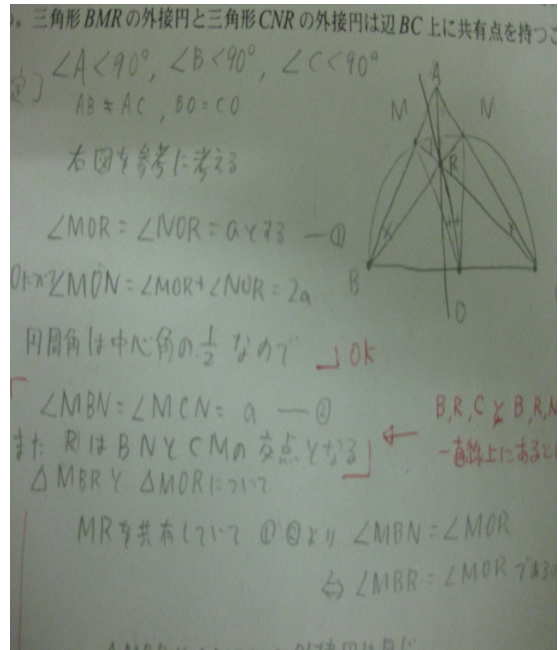 。三角形BMRの外接円と三角形CNRの外接円は辺BC上に共有点を持つこ
定〕 ∠A<90°, ∠B<90°, ∠C<90°
AB≠AC, BO=CO
右図を参考に考える
A
M N
R
x
B
O
∠MOR=∠NOR=aとする ―①
∠MON=∠MOR+∠NOR=2a
円周角は中心角の1/2なので OK
∠MBN=∠MCN=a ―②
また RはBNとCMの交点となる
B,R,CとB,R,N
一直線上にあると
△MBRと△MORについて
MRを共有していて ①②より ∠MBN=∠MOR
⇔ ∠MBR=∠MORである